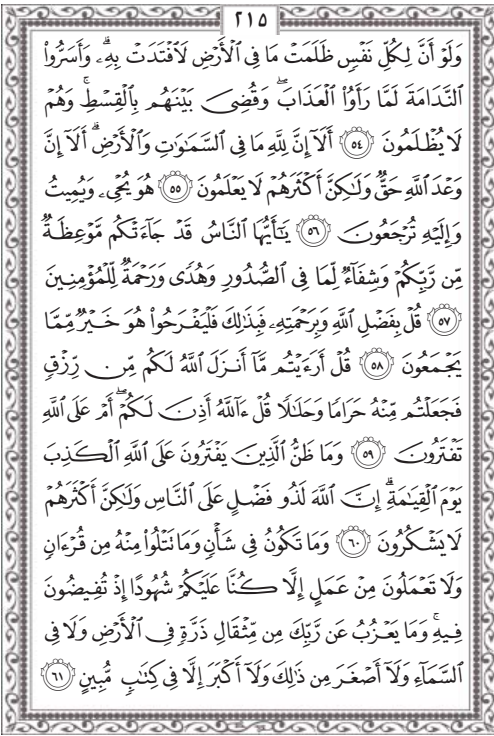 ٢١٥
وَلَوْ أَنَّ لِكُلِّ نَفْسٍ ظَلَمَتْ مَا فِي ٱلْأَرْضِ لَٱفْتَدَتْ بِهِۦۗ وَأَسَرُّوا۟
ٱلنَّدَامَةَ لَمَّا رَأَوُا۟ ٱلْعَذَابَۖ وَقُضِىَ بَيْنَهُم بِٱلْقِسْطِۚ وَهُمْ
لَا يُظْلَمُونَ ٥٤ أَلَآ إِنَّ لِلَّهِ مَا فِي ٱلسَّمَٰوَٰتِ وَٱلْأَرْضِۗ أَلَآ إِنَّ
وَعْدَ ٱللَّهِ حَقٌّ وَلَٰكِنَّ أَكْثَرَهُمْ لَا يَعْلَمُونَ ٥٥ هُوَ يُحْىِۦ وَيُمِيتُ
وَإِلَيْهِ تُرْجَعُونَ ٥٦ يَٰٓأَيُّهَا ٱلنَّاسُ قَدْ جَآءَتْكُم مَّوْعِظَةٌ
مِّن رَّبِّكُمْ وَشِفَآءٌ لِّمَا فِي ٱلصُّدُورِ وَهُدًى وَرَحْمَةٌ لِّلْمُؤْمِنِينَ
٥٧ قُلْ بِفَضْلِ ٱللَّهِ وَبِرَحْمَتِهِۦ فَبِذَٰلِكَ فَلْيَفْرَحُوا۟ هُوَ خَيْرٌ مِّمَّا
يَجْمَعُونَ ٥٨ قُلْ أَرَءَيْتُم مَّآ أَنزَلَ ٱللَّهُ لَكُم مِّن رِّزْقٍ
فَجَعَلْتُم مِّنْهُ حَرَامًا وَحَلَٰلًا قُلْ ءَآللَّهُ أَذِنَ لَكُمْۖ أَمْ عَلَى ٱللَّهِ
تَفْتَرُونَ ٥٩ وَمَا ظَنُّ ٱلَّذِينَ يَفْتَرُونَ عَلَى ٱللَّهِ ٱلْكَذِبَ
يَوْمَ ٱلْقِيَٰمَةِۗ إِنَّ ٱللَّهَ لَذُو فَضْلٍ عَلَى ٱلنَّاسِ وَلَٰكِنَّ أَكْثَرَهُمْ
لَا يَشْكُرُونَ ٦٠ وَمَا تَكُونُ فِي شَأْنٍ وَمَا تَتْلُوا۟ مِنْهُ مِن قُرْءَانٍ
وَلَا تَعْمَلُونَ مِنْ عَمَلٍ إِلَّا كُنَّا عَلَيْكُمْ شُهُودًا إِذْ تُفِيضُونَ
فِيهِۚ وَمَا يَعْزُبُ عَن رَّبِّكَ مِن مِّثْقَالِ ذَرَّةٍ فِي ٱلْأَرْضِ وَلَا فِي
ٱلسَّمَآءِ وَلَآ أَصْغَرَ مِن ذَٰلِكَ وَلَآ أَكْبَرَ إِلَّا فِي كِتَٰبٍ مُّبِينٍ ٦١